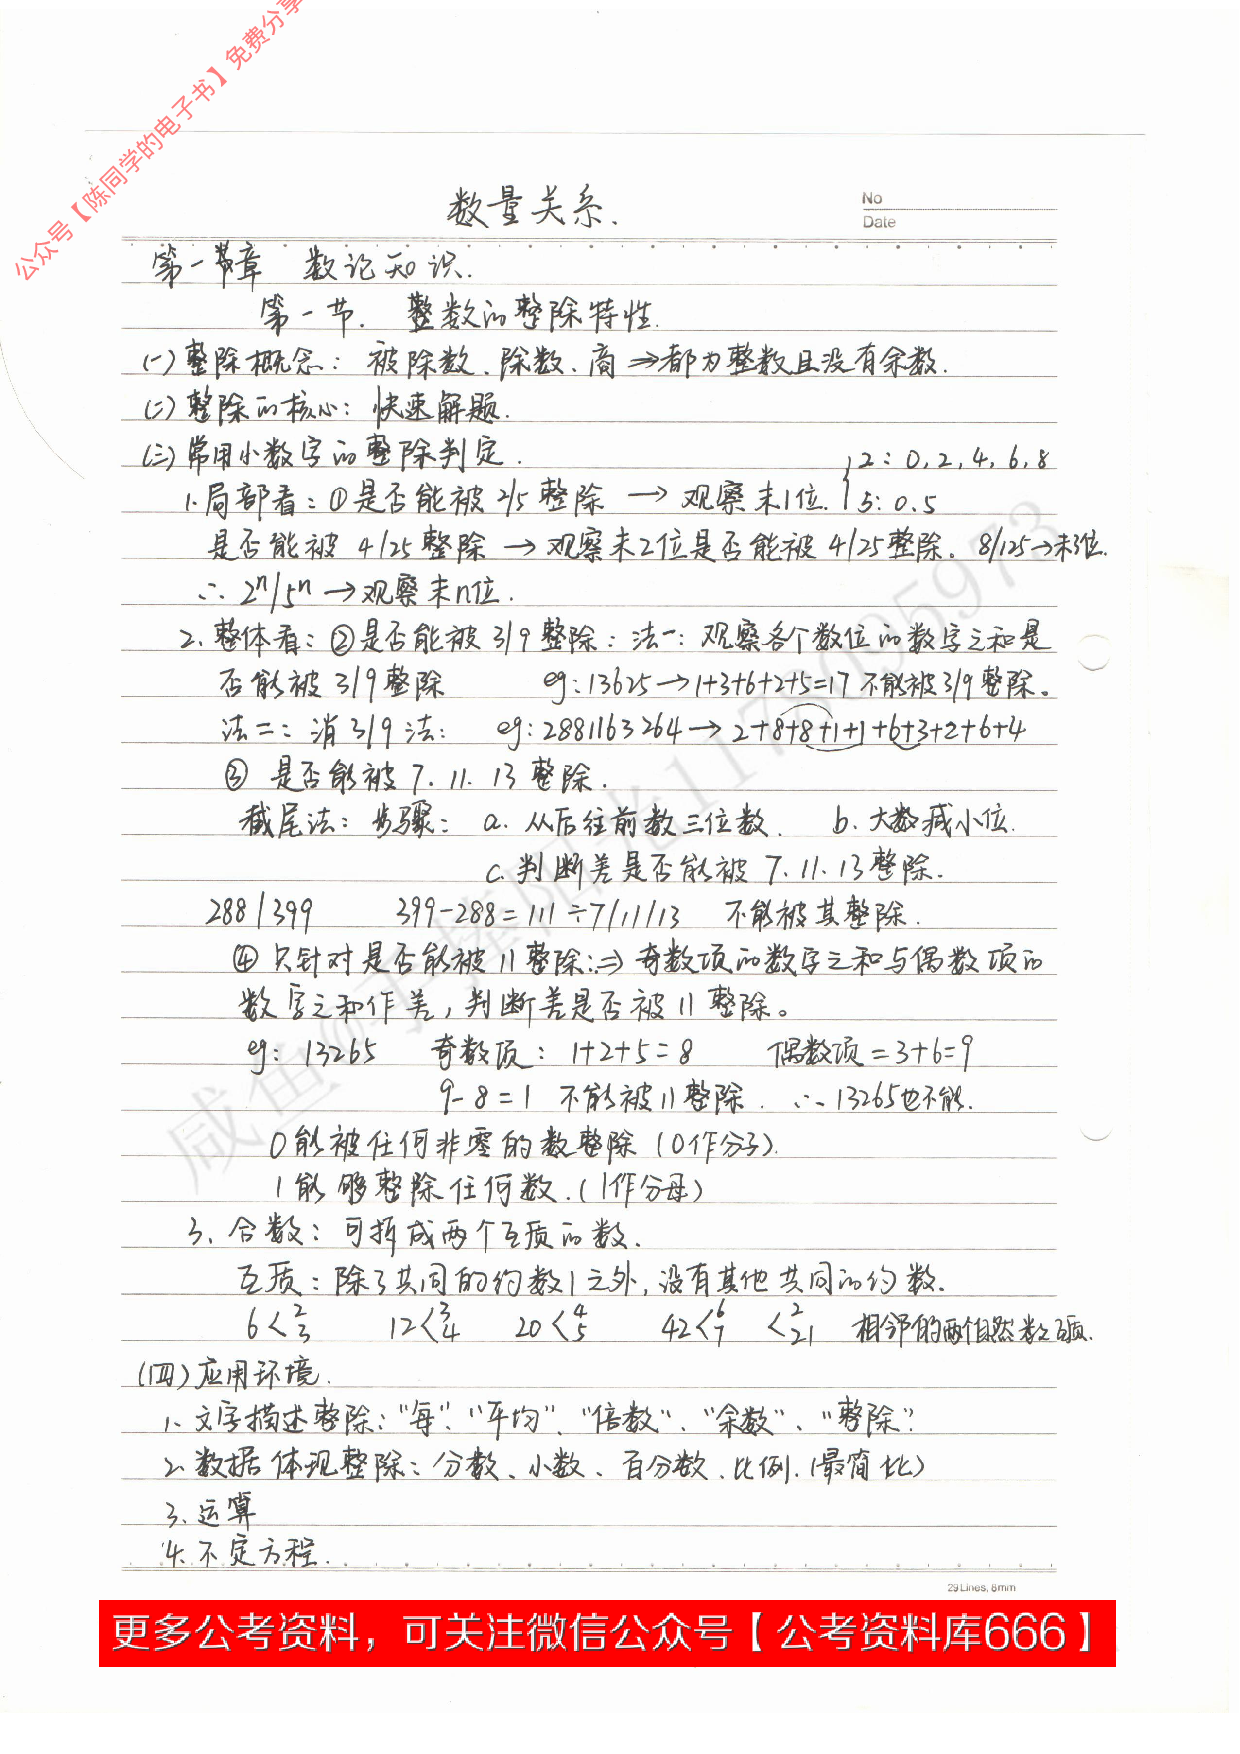 公众号【陈同学的电子书】免费分享
数量关系.
No
Date
第一章 数论知识.
第一节. 整数的整除特性.
(一) 整除概念: 被除数、除数、商 ⇒都为整数且没有余数.
(二) 整除的核心: 快速解题.
(三) 常用小数字的整除判定.
1. 局部看: ①是否能被 2/5 整除 → 观察末1位. { 2: 0, 2, 4, 6, 8
5: 0.5
是否能被 4/25 整除 → 观察末2位是否能被 4/25 整除. 8/125→末3位.
∴ 2ⁿ/5ⁿ → 观察末n位.
2. 整体看: ②是否能被 3/9 整除: 法一: 观察各个数位的数字之和是
否能被 3/9 整除 eg: 13625 → 1+3+6+2+5=17 不能被 3/9 整除。
法二: 消 3/9 法: eg: 2881163264 → 2+8+8+1+1+6+3+2+6+4
③ 是否能被 7. 11. 13 整除.
截尾法: 步骤: a. 从后往前数三位数. b. 大数减小位.
c. 判断差是否能被 7. 11. 13 整除.
288 / 399 399-288=111 ÷7/11/13 不能被其整除.
④ 只针对是否能被 11 整除: ⇒ 奇数项的数字之和与偶数项的
数字之和作差, 判断差是否被 11 整除。
eg: 13265 奇数项: 1+2+5=8 偶数项=3+6=9
9-8=1 不能被 11 整除. ∴ 13265也不能.
0能被任何非零的数整除 (0作分子).
1能够整除任何数. (1作分母)
3. 合数: 可拆成两个互质的数.
互质: 除了共同的约数1之外, 没有其他共同的约数.
6< 2 3 12< 3 4 20< 4 5 42< 6 7 < 2 21 相邻的两个自然数互质.
(四) 应用环境.
1. 文字描述整除: “每”、“平均”、“倍数”、“余数”、“整除”
2. 数据体现整除: 分数、小数、百分数、比例. (最简比)
3. 运算
4. 不定方程.
29 Lines, 8mm
咸鱼@手捧阳光1178095973
更多公考资料，可关注微信公众号【公考资料库666】